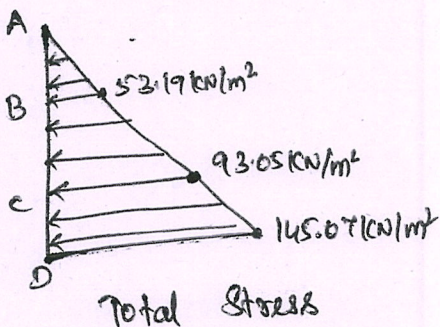 A
53.19 kN/m²
B
93.05 kN/m²
C
145.07 kN/m²
D
Total Stress